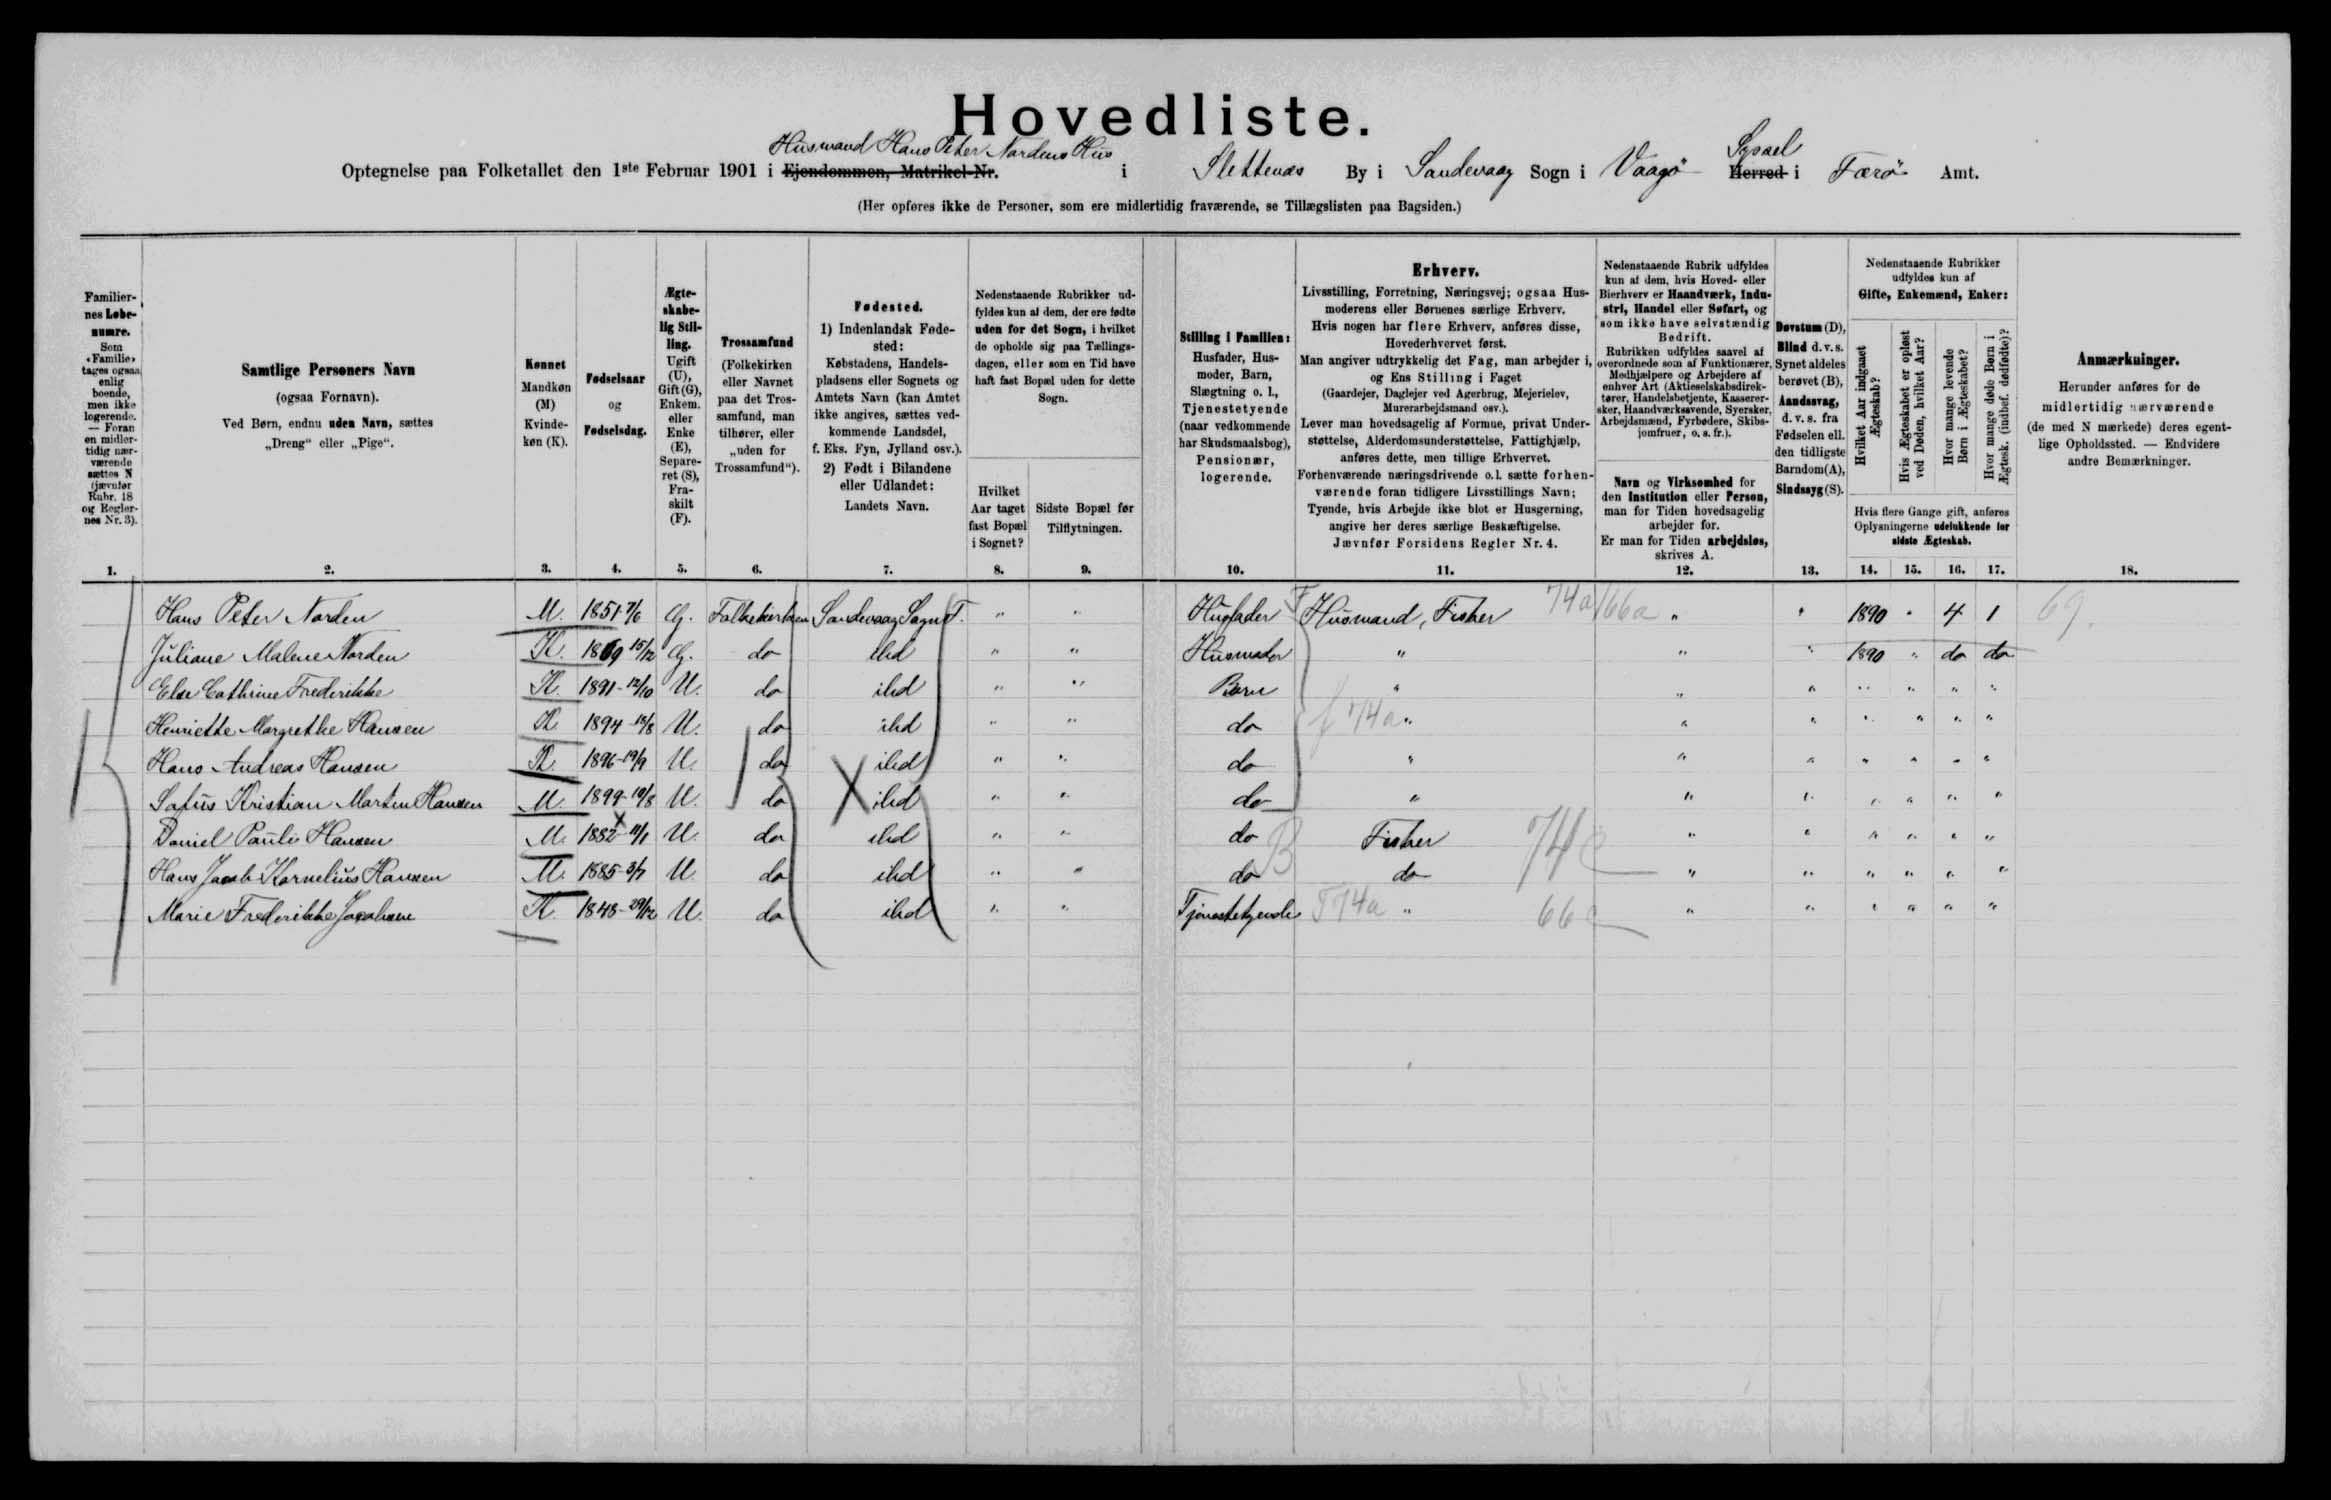 Hovedliste.
Husmand Hans Peter Nordens Hus
Sysael
Optegnelse paa Folketallet den 1ste Februar 1901 i Ejendommen, Matrikel-Nr. i Slettenæs By i Sandevaag Sogn i Vaagø Herred i Færø Amt.
(Her opføres ikke de Personer, som ere midlertidig fraværende, se Tillægslisten paa Bagsiden.)
Familiernes Løbenumre. Som «Familie» tages ogsaa enlig boende, men ikke logerende. — Foran en midlertidig nærværende sættes N (jævnfør Rubr. 18 og Reglernes Nr. 3).
Samtlige Personers Navn (ogsaa Fornavn). Ved Børn, endnu uden Navn, sættes „Dreng“ eller „Pige“.
Kønnet Mandkøn (M) Kvindekøn (K).
Fødselsaar og Fødselsdag.
Ægteskabelig Stilling. Ugift (U), Gift (G), Enkem. eller Enke (E), Separeret (S), Fraskilt (F).
Trossamfund (Folkekirken eller Navnet paa det Trossamfund, man tilhører, eller „uden for Trossamfund“).
Fødested. 1) Indenlandsk Fødested: Købstadens, Handelspladsens eller Sognets og Amtets Navn (kan Amtet ikke angives, sættes vedkommende Landsdel, f. Eks. Fyn, Jylland osv.). 2) Født i Bilandene eller Udlandet: Landets Navn.
Nedenstaaende Rubrikker udfyldes kun af dem, der ere fødte uden for det Sogn, i hvilket de opholde sig paa Tællingsdagen, eller som en Tid have haft fast Bopæl uden for dette Sogn.
Hvilket Aar taget fast Bopæl i Sognet?
Sidste Bopæl før Tilflytningen.
Stilling i Familien: Husfader, Husmoder, Barn, Slægtning o. l., Tjenestetyende (naar vedkommende har Skudsmaalsbog), Pensionær, logerende.
Erhverv.
Livsstilling, Forretning, Næringsvej; ogsaa Husmoderens eller Børnenes særlige Erhverv.
Hvis nogen har flere Erhverv, anføres disse, Hovederhvervet først.
Man angiver udtrykkelig det Fag, man arbejder i, og Ens Stilling i Faget
(Gaardejer, Daglejer ved Agerbrug, Mejerielev, Murerarbejdsmand osv.).
Lever man hovedsagelig af Formue, privat Understøttelse, Alderdomsunderstøttelse, Fattighjælp, anføres dette, men tillige Erhvervet.
Forhenværende næringsdrivende o.l. sætte forhenværende foran tidligere Livsstillings Navn;
Tyende, hvis Arbejde ikke blot er Husgerning, angive her deres særlige Beskæftigelse.
Jævnfør Forsidens Regler Nr. 4.
Nedenstaaende Rubrik udfyldes kun af dem, hvis Hoved- eller Bierhverv er Haandværk, Industri, Handel eller Søfart, og som ikke have selvstændig Bedrift.
Rubrikken udfyldes saavel af overordnede som af Funktionærer, Medhjælpere og Arbejdere af enhver Art (Aktieselskabsdirektører, Handelsbetjente, Kassererker, Haandværkssvende, Syersker, Arbejdsmænd, Fyrbødere, Skibsjomfruer, o. s. fr.).
Navn og Virksomhed for den Institution eller Person, man for Tiden hovedsagelig arbejder for.
Er man for Tiden arbejdsløs, skrives A.
Døvstum (D), Blind d. v. s. Synet aldeles berøvet (B), Aandssvag, d. v. s. fra Fødselen ell. den tidligste Barndom (A), Sindssyg (S).
Nedenstaaende Rubrikker udfyldes kun af Gifte, Enkemænd, Enker:
Hvilket Aar indgaaet Ægteskab?
Hvis Ægteskabet er opløst ved Døden, hvilket Aar?
Hvor mange levende Børn i Ægteskabet?
Hvor mange døde Børn i Ægtesk. (indbef. dødfødte)?
Hvis flere Gange gift, anføres Oplysningerne udelukkende for sidste Ægteskab.
Anmærkninger.
Herunder anføres for de midlertidig nærværende (de med N mærkede) deres egentlige Opholdssted. — Endvidere andre Bemærkninger.
1. 2. 3. 4. 5. 6. 7. 8. 9. 10. 11. 12. 13. 14. 15. 16. 17. 18.
Hans Peter Norden M. 1851 7/6 G. Folkekirken Sandevaag Sogn F. " " Husfader Husmand, Fisker 74a 66a " " 1890 " 4 1 69.
Juliane Malene Norden K. 1869 15/12 G. do ibd " " Husmoder " " " 1890 " do do
Else Cathrine Frederikke K. 1891-12/10 U. do ibd " " Børn " " " " " " "
Henriette Margrethe Hansen K. 1894-13/8 U. do ibd " " do f 74a " " " " " " "
Hans Andreas Hansen K. 1896-19/9 U. do ibd " " do " " " " " " "
Sofus Kristian Morten Hansen M. 1899-10/8 U. do ibd " " do " " " " " " "
Daniel Pauli Hansen M. 1882-11/1 U. do ibd " " do B Fisker 74c " " " " " "
Hans Jacob Kornelius Hansen M. 1885-3/7 U. do ibd " " do do " " " " " "
Marie Frederikke Jacobsen K. 1848-29/12 U. do ibd " " Tjenestetyende F 74a " 66a " " " " " "